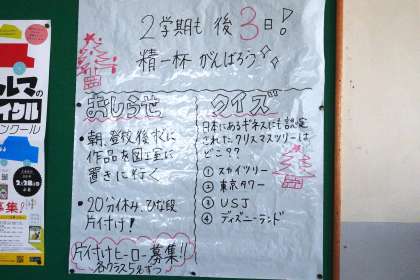 2学期も後3日!
精一杯がんばろう
おしらせ
・朝、登校後すぐに
作品を図工室に
置きに行く
・20分休み、ひな段
片付け!
片付けヒーロー募集!!
クイズ
日本にあるギネスにも認定
されたクリスマスツリーは
どこ??
① スカイツリー
② 東京タワー
③ USJ
④ ディズニーランド